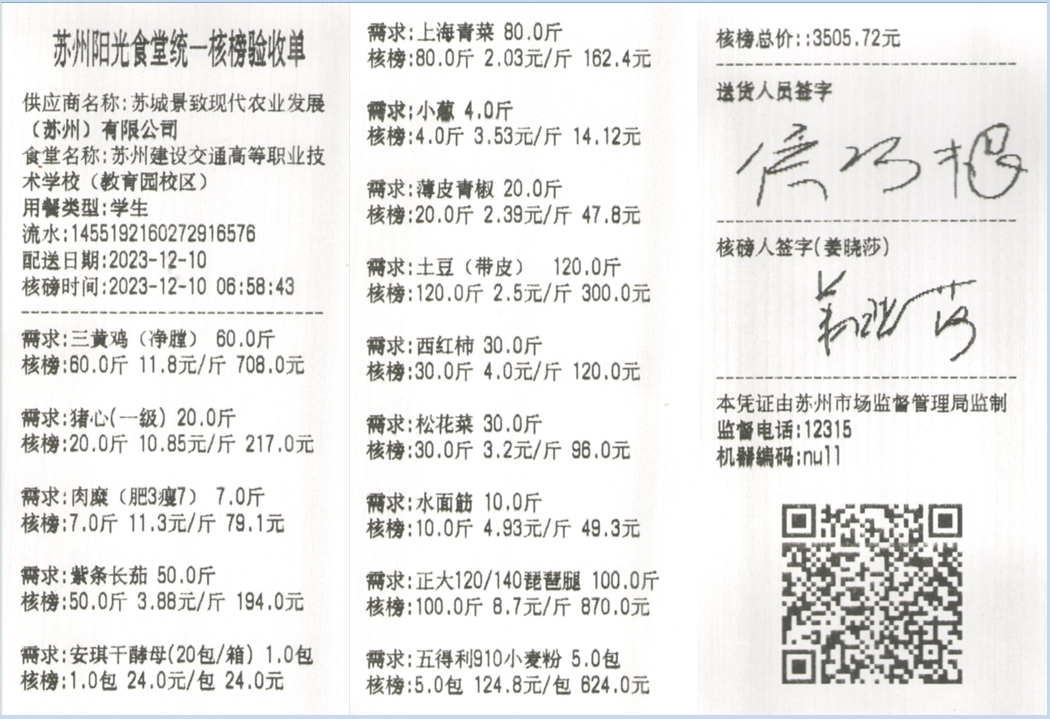 苏州阳光食堂统一核榜验收单
供应商名称:苏城景致现代农业发展
（苏州）有限公司
食堂名称:苏州建设交通高等职业技
术学校（教育园校区）
用餐类型:学生
流水:1455192160272916576
配送日期:2023-12-10
核磅时间:2023-12-10 06:58:43
需求:三黄鸡（净膛） 60.0斤
核榜:60.0斤 11.8元/斤 708.0元
需求:猪心(一级) 20.0斤
核榜:20.0斤 10.85元/斤 217.0元
需求:肉糜（肥3瘦7） 7.0斤
核榜:7.0斤 11.3元/斤 79.1元
需求:紫条长茄 50.0斤
核榜:50.0斤 3.88元/斤 194.0元
需求:安琪干酵母(20包/箱) 1.0包
核榜:1.0包 24.0元/包 24.0元
需求:上海青菜 80.0斤
核榜:80.0斤 2.03元/斤 162.4元
需求:小葱 4.0斤
核榜:4.0斤 3.53元/斤 14.12元
需求:薄皮青椒 20.0斤
核榜:20.0斤 2.39元/斤 47.8元
需求:土豆（带皮） 120.0斤
核榜:120.0斤 2.5元/斤 300.0元
需求:西红柿 30.0斤
核榜:30.0斤 4.0元/斤 120.0元
需求:松花菜 30.0斤
核榜:30.0斤 3.2元/斤 96.0元
需求:水面筋 10.0斤
核榜:10.0斤 4.93元/斤 49.3元
需求:正大120/140琵琶腿 100.0斤
核榜:100.0斤 8.7元/斤 870.0元
需求:五得利910小麦粉 5.0包
核榜:5.0包 124.8元/包 624.0元
核榜总价::3505.72元
送货人员签字
核磅人签字(姜晓莎)
姜晓莎
本凭证由苏州市场监督管理局监制
监督电话:12315
机器编码:null